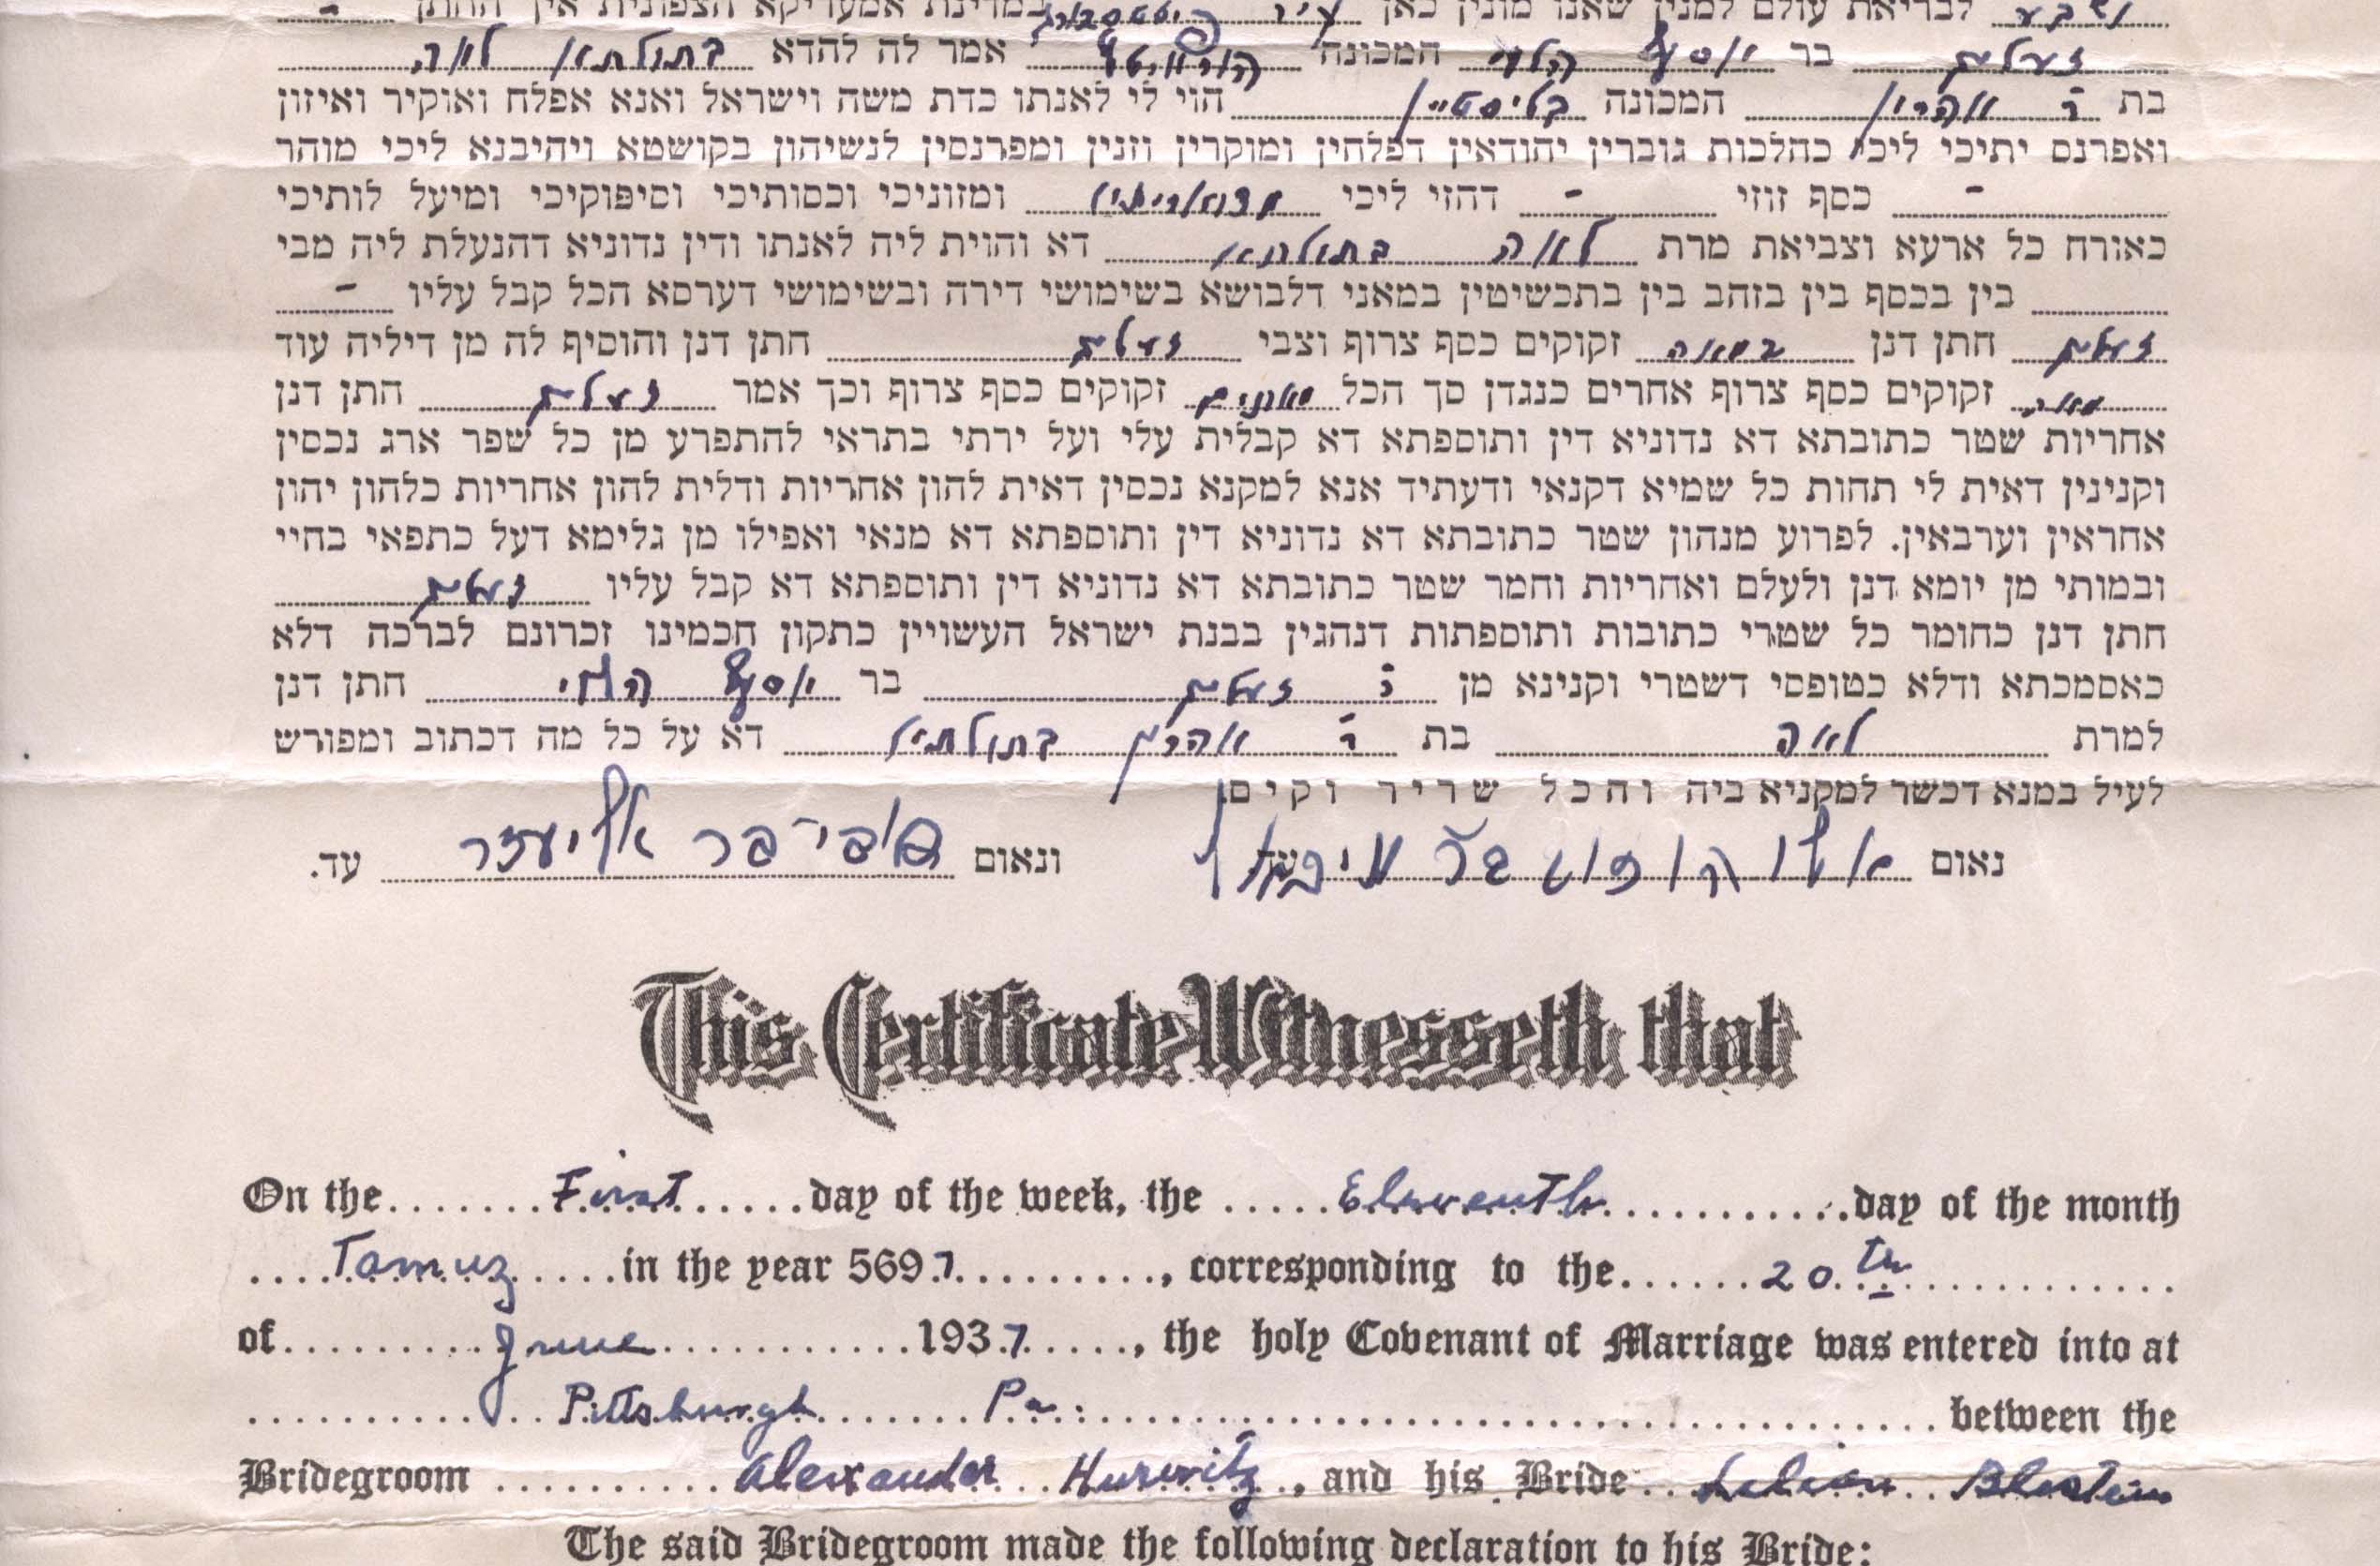 ושבע לבריאת עולם למנין שאנו מונין כאן עיר פיטסבורג במדינת אמעריקא הצפונית איך החתן -
זעלם בר יוסף הלוי המכונה הורוויטץ אמר לה להדא בתולתא לאה
בת ר אהרון המכונה בליסטיין הוי לי לאנתו כדת משה וישראל ואנא אפלח ואוקיר ואיזון
ואפרנס יתיכי ליכי כהלכות גוברין יהודאין דפלחין ומוקרין וזנין ומפרנסין לנשיהון בקושטא ויהיבנא ליכי מוהר
- כסף זוזי - דהזי ליכי מדאורייתא ומזוניכי וכסותיכי וסיפוקיכי ומיעל לותיכי
כאורח כל ארעא וצביאת מרת לאה בתולתא דא והוית ליה לאנתו ודין נדוניא דהנעלת ליה מבי
בין בכסף בין בזהב בין בתכשיטין במאני דלבושא בשימושי דירה ובשימושי דערסא הכל קבל עליו -
זעלם חתן דנן במאה זקוקים כסף צרוף וצבי זעלם חתן דנן והוסיף לה מן דיליה עוד
מאה זקוקים כסף צרוף אחרים כנגדן סך הכל מאתים זקוקים כסף צרוף וכך אמר זעלם חתן דנן
אחריות שטר כתובתא דא נדוניא דין ותוספתא דא קבלית עלי ועל ירתי בתראי להתפרע מן כל שפר ארג נכסין
וקנינין דאית לי תחות כל שמיא דקנאי ודעתיד אנא למקנא נכסין דאית להון אחריות ודלית להון אחריות כלהון יהון
אחראין וערבאין. לפרוע מנהון שטר כתובתא דא נדוניא דין ותוספתא דא מנאי ואפילו מן גלימא דעל כתפאי בחיי
ובמותי מן יומא דנן ולעלם ואחריות וחמר שטר כתובתא דא נדוניא דין ותוספתא דא קבל עליו זעלם
חתן דנן כחומר כל שטרי כתובות ותוספתות דנהגין בבנת ישראל העשויין כתקון חכמינו זכרונם לברכה דלא
כאסמכתא ודלא כטופסי דשטרי וקנינא מן ר זעלם בר יוסף הלוי חתן דנן
למרת לאה בת ר אהרן בתולתא דא על כל מה דכתוב ומפורש
לעיל במנא דכשר למקניא ביה והכל שריר וקים
נאום ונאום אליעזר עד.
This Certificate Witnesseth that
On the First day of the week, the Eleventh day of the month
Tamuz in the year 5697, corresponding to the 20th
of June 1937, the holy Covenant of Marriage was entered into at
Pittsburgh Pa. between the
Bridegroom Alexander Hurwitz, and his Bride Lilian Blestein
The said Bridegroom made the following declaration to his Bride: